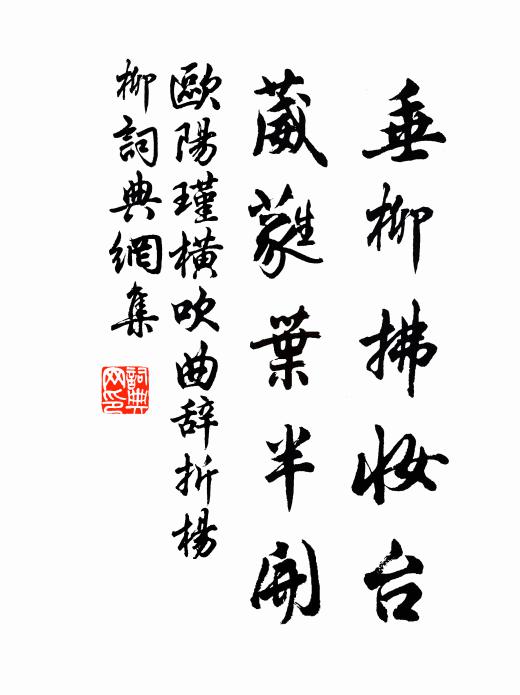 垂柳拂妆台
葳蕤葉半開
歐陽瑾橫吹曲辞折楊
柳詞典網集
詞典
网印